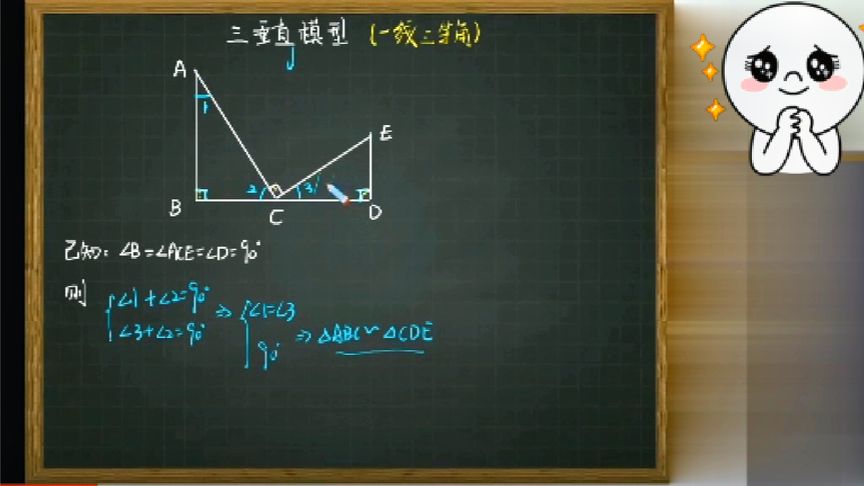 三垂直模型 (一线三等角)
A
1
E
2 3
B C D
已知: ∠B=∠ACE=∠D=90°
则 {∠1+∠2=90° ⇒ {∠1=∠3
∠3+∠2=90° 90° ⇒ △ABC∽△CDE